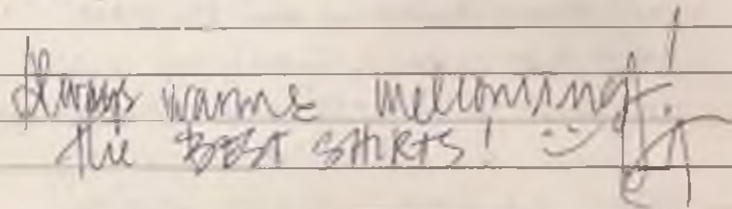 Always warm & wellcoming!
The BEST SHIRTS! :)